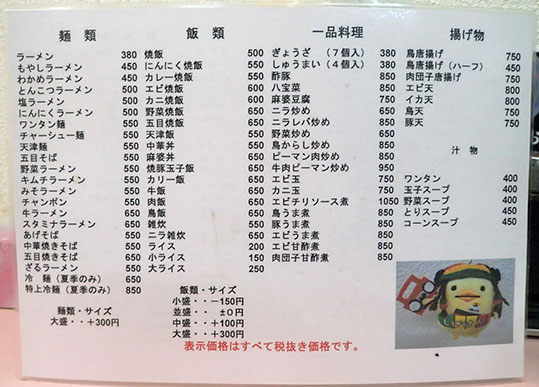 麺 類
ラーメン 380
もやしラーメン 450
わかめラーメン 450
とんこつラーメン 500
塩ラーメン 500
にんにくラーメン 500
ワンタン麺 550
チャーシュー麺 550
天津麺 550
五目そば 550
野菜ラーメン 550
キムチラーメン 550
みそラーメン 550
チャンポン 550
牛ラーメン 650
スタミナラーメン 650
あげそば 550
中華焼きそば 550
五目焼きそば 650
ざるラーメン 550
冷 麺(夏季のみ) 650
特上冷麺(夏季のみ) 850
麺類・サイズ
大盛・・+300円
飯 類
焼飯 500
にんにく焼飯 550
カレー焼飯
エビ焼飯 600
カニ焼飯
野菜焼飯
五目焼飯
天津飯 550
中華丼 550
麻婆丼 550
焼豚玉子飯 650
カリー飯
牛飯
肉飯 650
鳥飯 650
雑炊
ニラ雑炊 650
ライス 200
小ライス 150
大ライス 250
飯類・サイズ
小盛・・-150円
並盛・・ ±0円
中盛・・+100円
大盛・・+300円
一品料理
ぎょうざ (7個入) 380
しゅうまい(4個入) 380
酢豚 850
八宝菜 850
麻婆豆腐 750
ニラ炒め 650
ニラレバ炒め 650
野菜炒め 650
鳥からし炒め 850
ピーマン肉炒め 850
牛肉ピーマン炒め 950
エビ玉 750
カニ玉 750
エビチリソース煮 1050
鳥うま煮 850
豚うま煮 850
エビ甘酢煮 850
肉団子甘酢煮 850
揚げ物
鳥唐揚げ 750
鳥唐揚げ(ハーフ) 450
肉団子唐揚げ 850
エビ天 800
イカ天 800
鳥天 750
豚天 750
汁 物
ワンタン 400
玉子スープ 400
野菜スープ 400
とりスープ 450
コーンスープ 450
表示価格はすべて税抜き価格です。